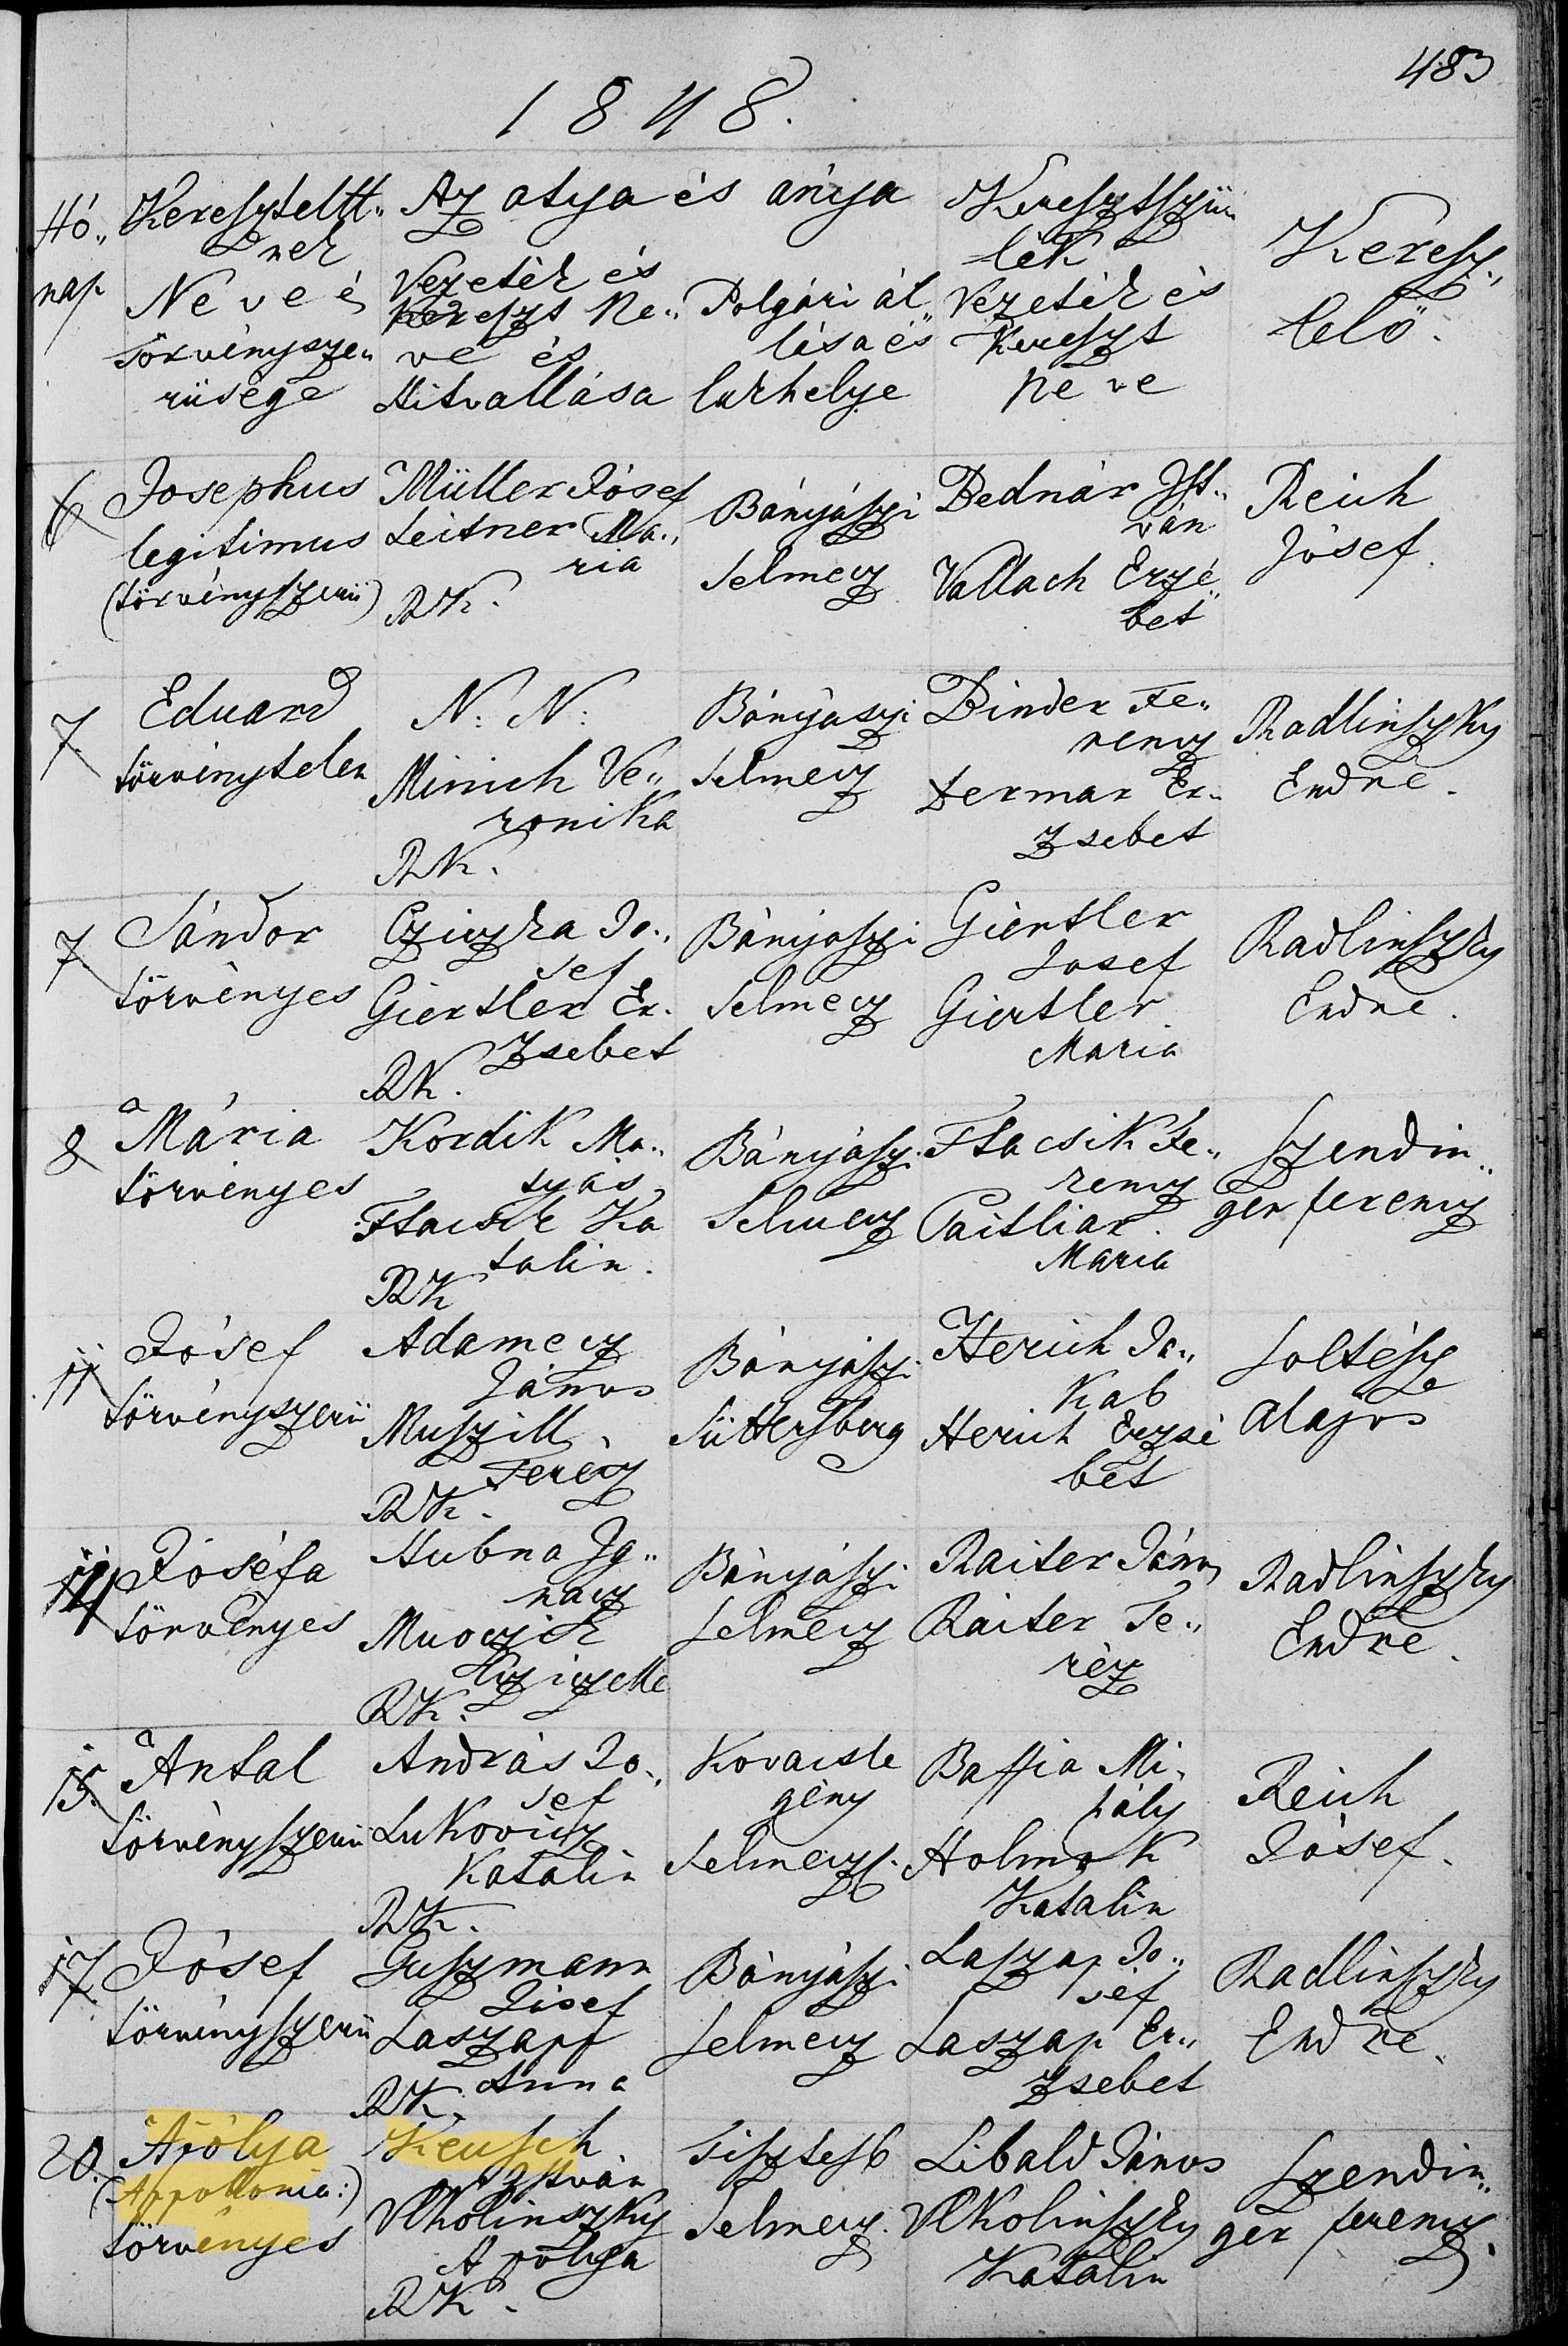 483
1848.
Hó„
nap
Keresztelt„
nek
Neve é
törvénysze„
rüsége
Az atya és anya
Vezeték és
Kereszt Ne„
ve és
Hitvallása
Polgári ál„
lása és
lakhelye
Keresztszü„
lék
Vezeték és
Kereszt
Neve
Keresz„
telö.
6
Josephus
legitimus
(törvényszerü)
Müller Jósef
Leitner Ma„
ria
RK.
Bányászi
Selmecz
Bednár Ist„
ván
Vallach Erzé„
bet
Reich
Jósef.
7
Eduard
törvénytelen
N. N.
Minich Ve„
ronika
RK.
Bányászi
Selmecz
Binder Fe„
rencz
Er„
zsebet
Radlinszky
Endre.
7
Sándor
törvényes
Cziczka Jo„
sef
Giertler Er„
zsebet
RK.
Bányászi
Selmecz
Giertler
Josef
Giertler
Maria
Radlinszky
Endre.
8
Mária
törvényes
Kordik Ma„
tyás
Ftacsik Ka
talin.
RK
Bányászi
Selmecz
Ftacsik Fe„
rencz
Paitliar
Maria
Szendin„
ger ferencz
11
Jósef
törvényszerü
Adamecz
János
Muszill
RK.
Bányászi
Herich Ja„
kab
Herich Erzsé
bet
Soltész
Alajos
14
Jósefa
törvényes
Hubna Ig„
nacz
RK.
Bányászi
Selmecz
Raiter János
Raiter Te„
réz
Radlinszky
Endre.
15.
Antal
törvényszerü
András Jo„
sef
Lukovicz
Katalin
RK.
Kovácsle
gény
Selmecz.
Baffia Mi„
hály
Holmok
Katalin
Reich
Jósef.
17.
Jósef
törvényszerü
Guszmann
Jósef
Laszapf
Anna
RK.
Bányászi
Selmecz
Laszap Jo„
sef
Laszap Er„
zsebet
Radlinszky
Endre.
20.
Apólya
(Appollonia:)
törvényes
Keusch
István
Vlkolinszky
Apólya
RK.
Tisztesb
Selmecz.
Libald János
Vlkolinszky
Katalin
Szendin„
ger ferencz.